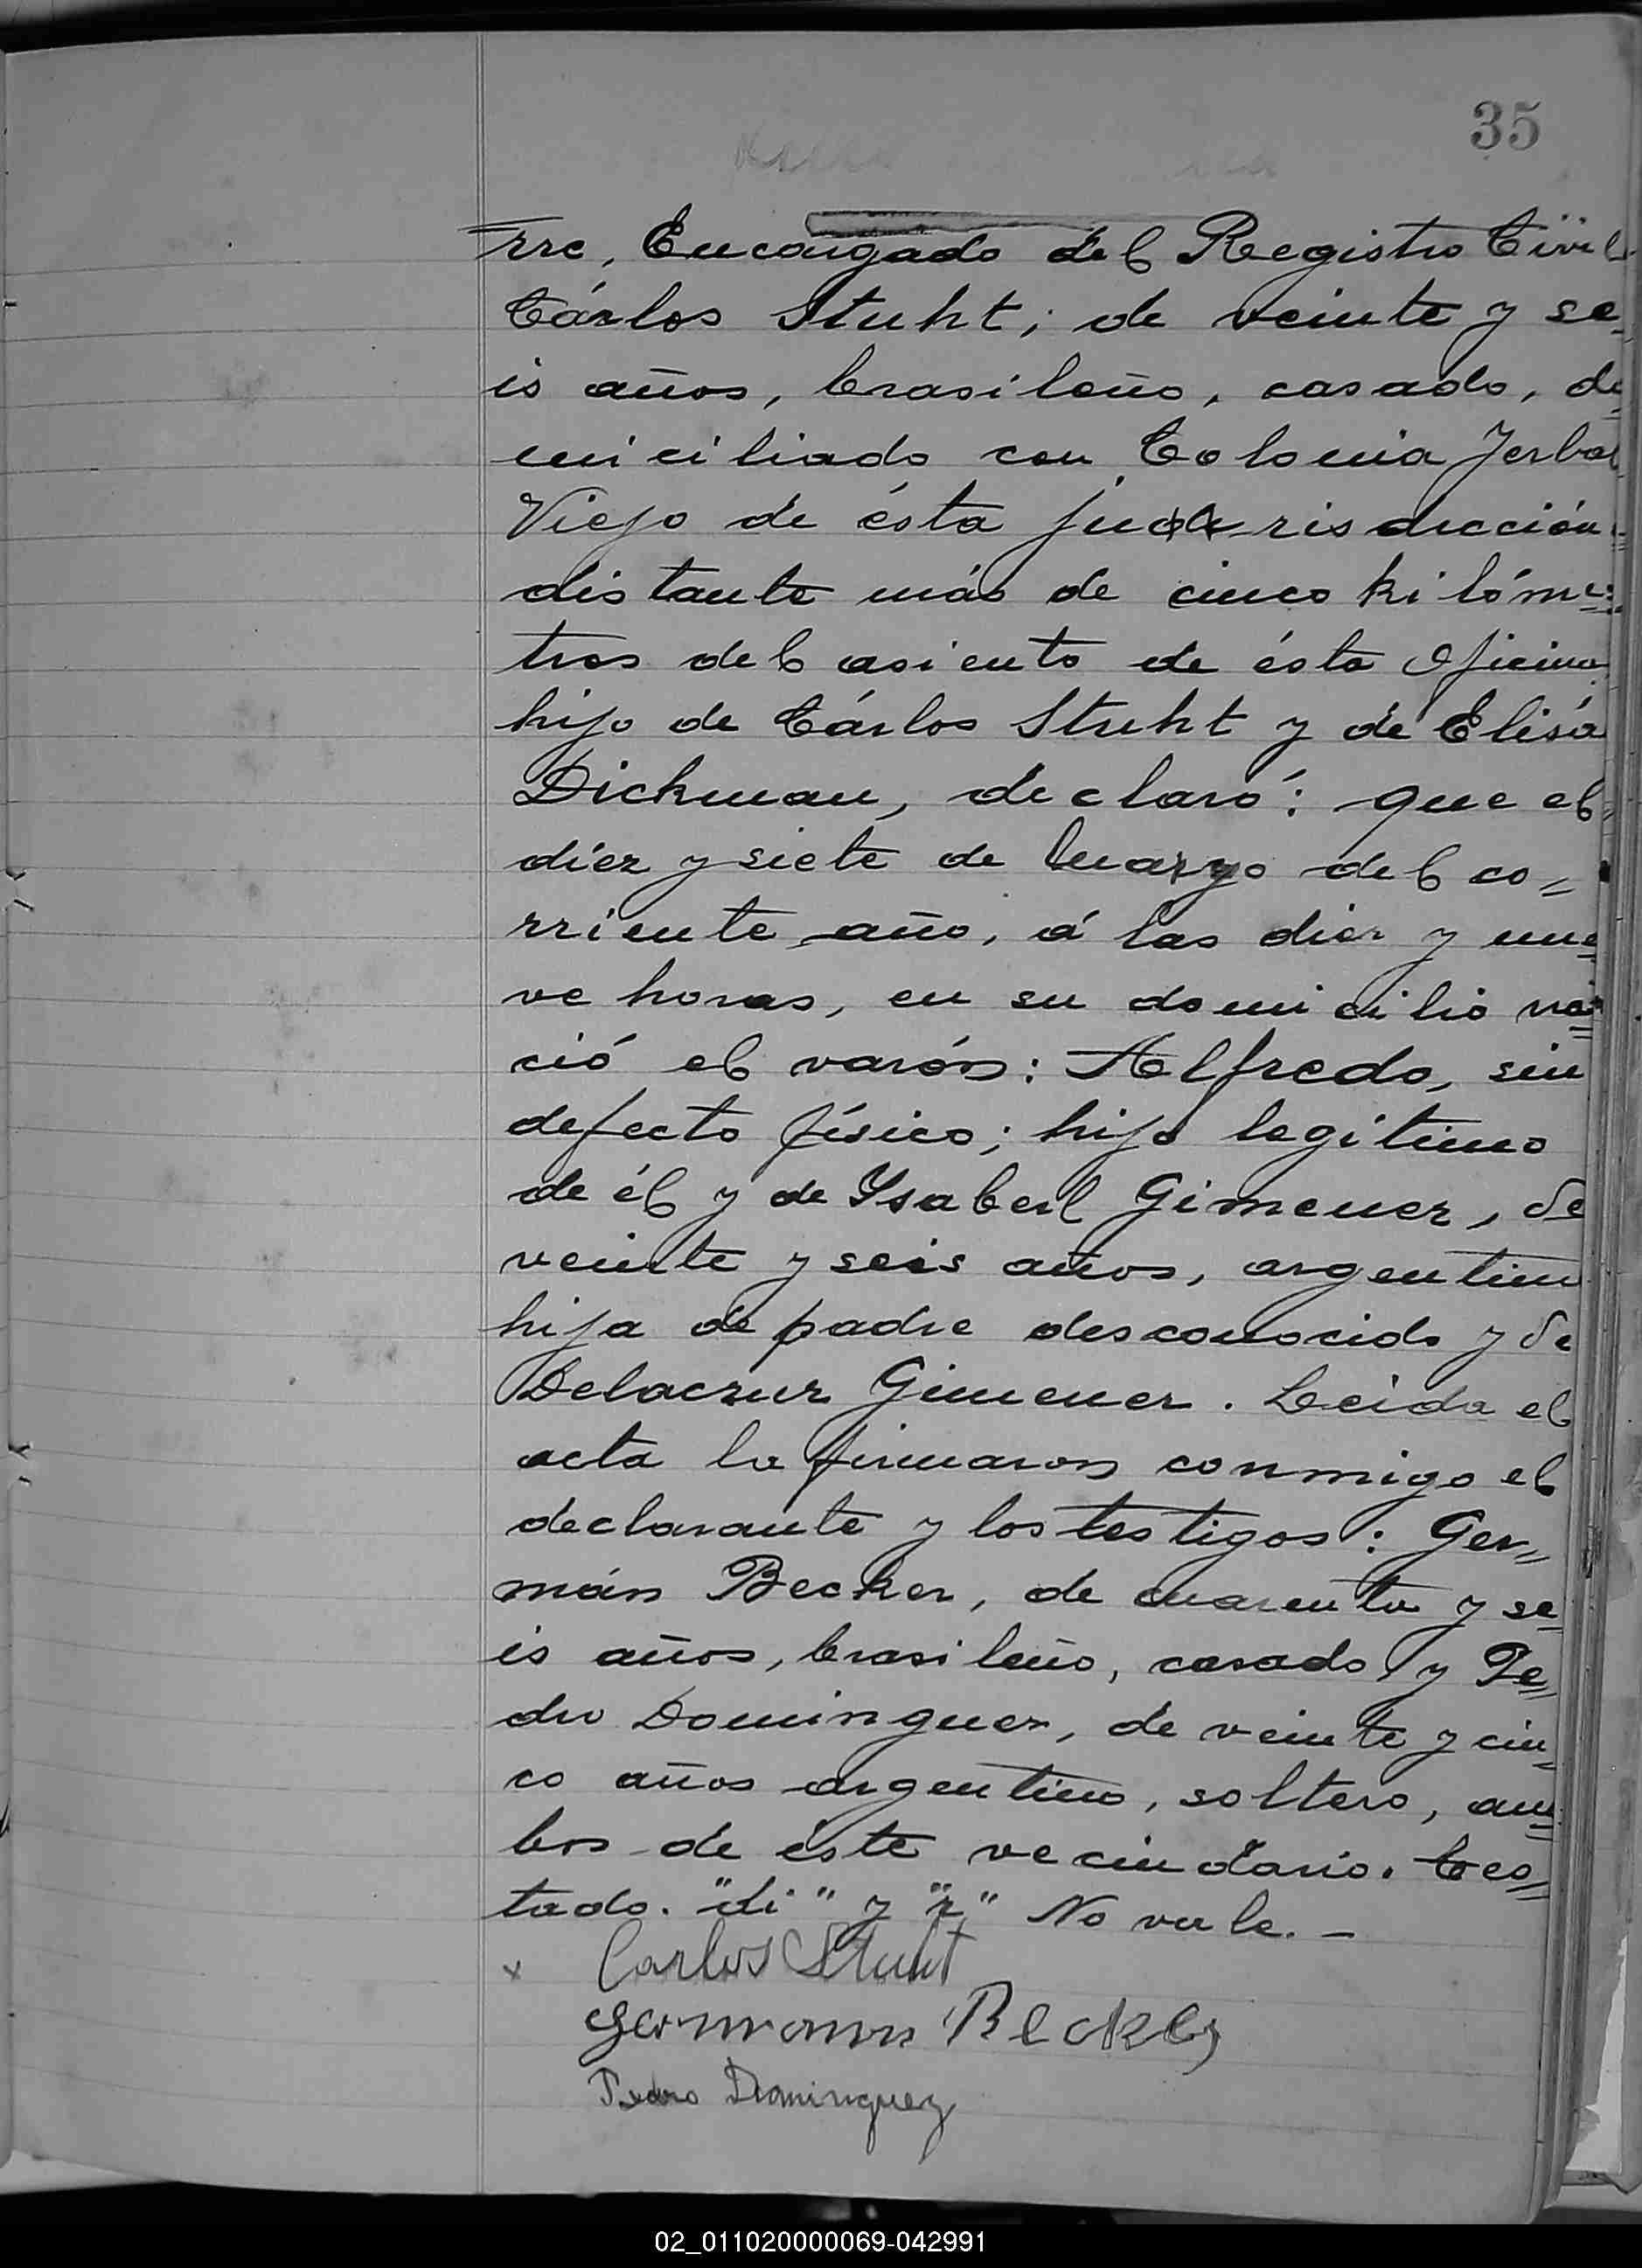 35
rre, Encargado del Registro Civil
Cárlos Stuht; de veinte y se=
is años, brasileño, casado, do=
miciliado con Colonia Yerbal
Viejo de ésta jurisdicción
distante más de cinco kilóme=
tros del asiento de ésta Oficina
hijo de Cárlos Stuht y de Elisa
Dickman, declaró: que el
diez y siete de Marzo del co=
rriente año, á las diez y nue=
ve horas, en su domicilio na=
ció el varón: Alfredo, sin
defecto físico; hijo legítimo
de él y de Ysabel Gimenez, de
veinte y seis años, argentina
hija de padre desconocido y de
Gimenez. Leida el
acta la firmaron conmigo el
declarante y los testigos: Ger=
mán Becker, de cuarenta y se=
is años, brasileño, casado y Pe=
dro Dominguez, de veinte y cin=
co años argentino, soltero, am=
bos de éste vecindario. Tes=
tado. "di" y "r" No vale.-
x Carlos Stuht
Germann Becker
Pedro Dominguez
02_011020000069-042991